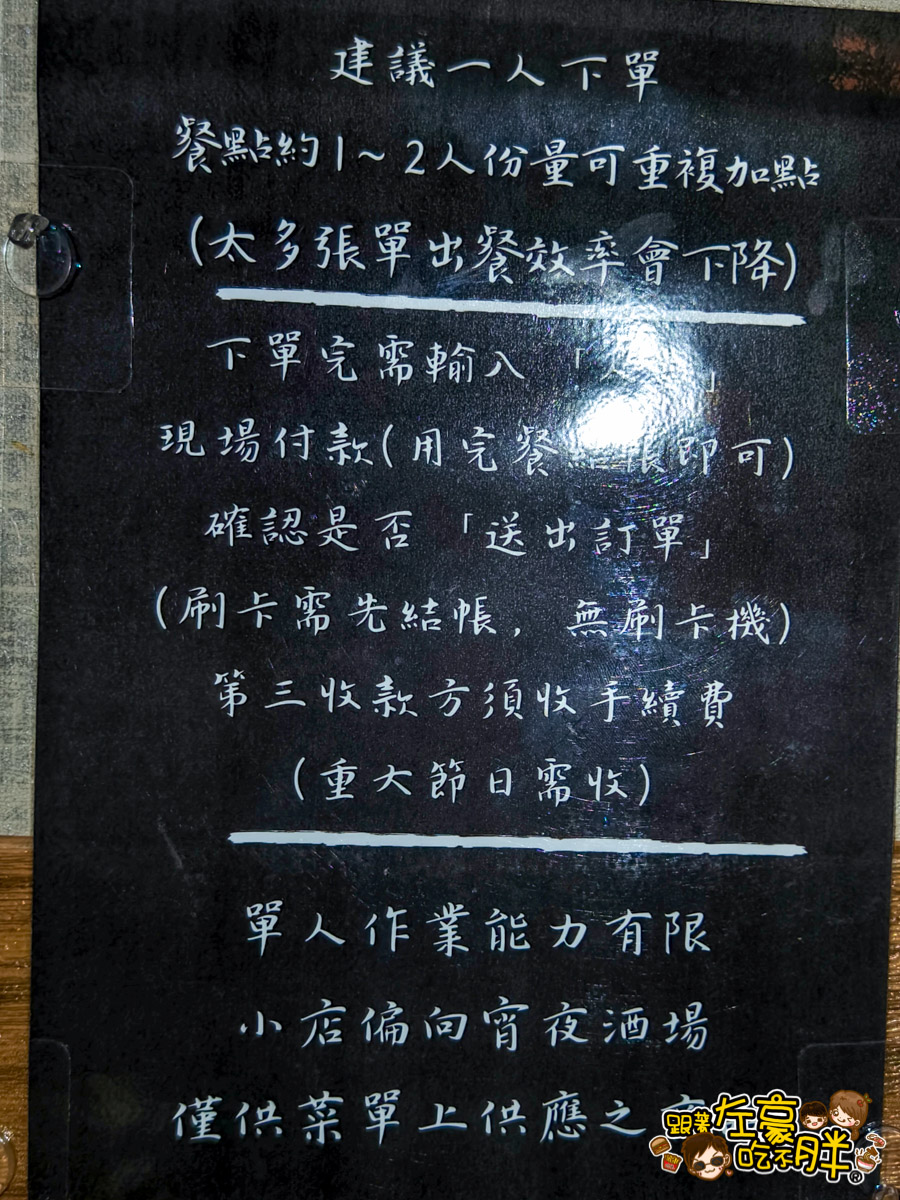 建議一人下單
餐點約1~2人份量可重複加點
(太多張單出餐效率會下降)
下單完需輸入「」
現場付款(用完餐帳即可)
確認是否「送出訂單」
(刷卡需先結帳, 無刷卡機)
第三收款方須收手續費
(重大節日需收)
單人作業能力有限
小店偏向宵夜酒場
僅供菜單上供應之
跟著左豪吃不胖®